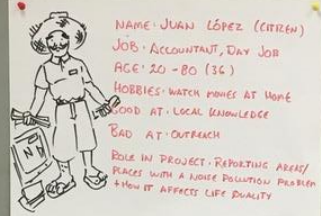 NAME: JUAN LÓPEZ (CITIZEN)
JOB: ACCOUNTANT, DAY JOB
AGE: 20-80 (36)
HOBBIES: WATCH MOVIES AT HOME
GOOD AT: LOCAL KNOWLEDGE
BAD AT: OUTREACH
ROLE IN PROJECT: REPORTING AREAS/
PLACES WITH A NOISE POLLUTION PROBLEM
+ HOW IT AFFECTS LIFE QUALITY